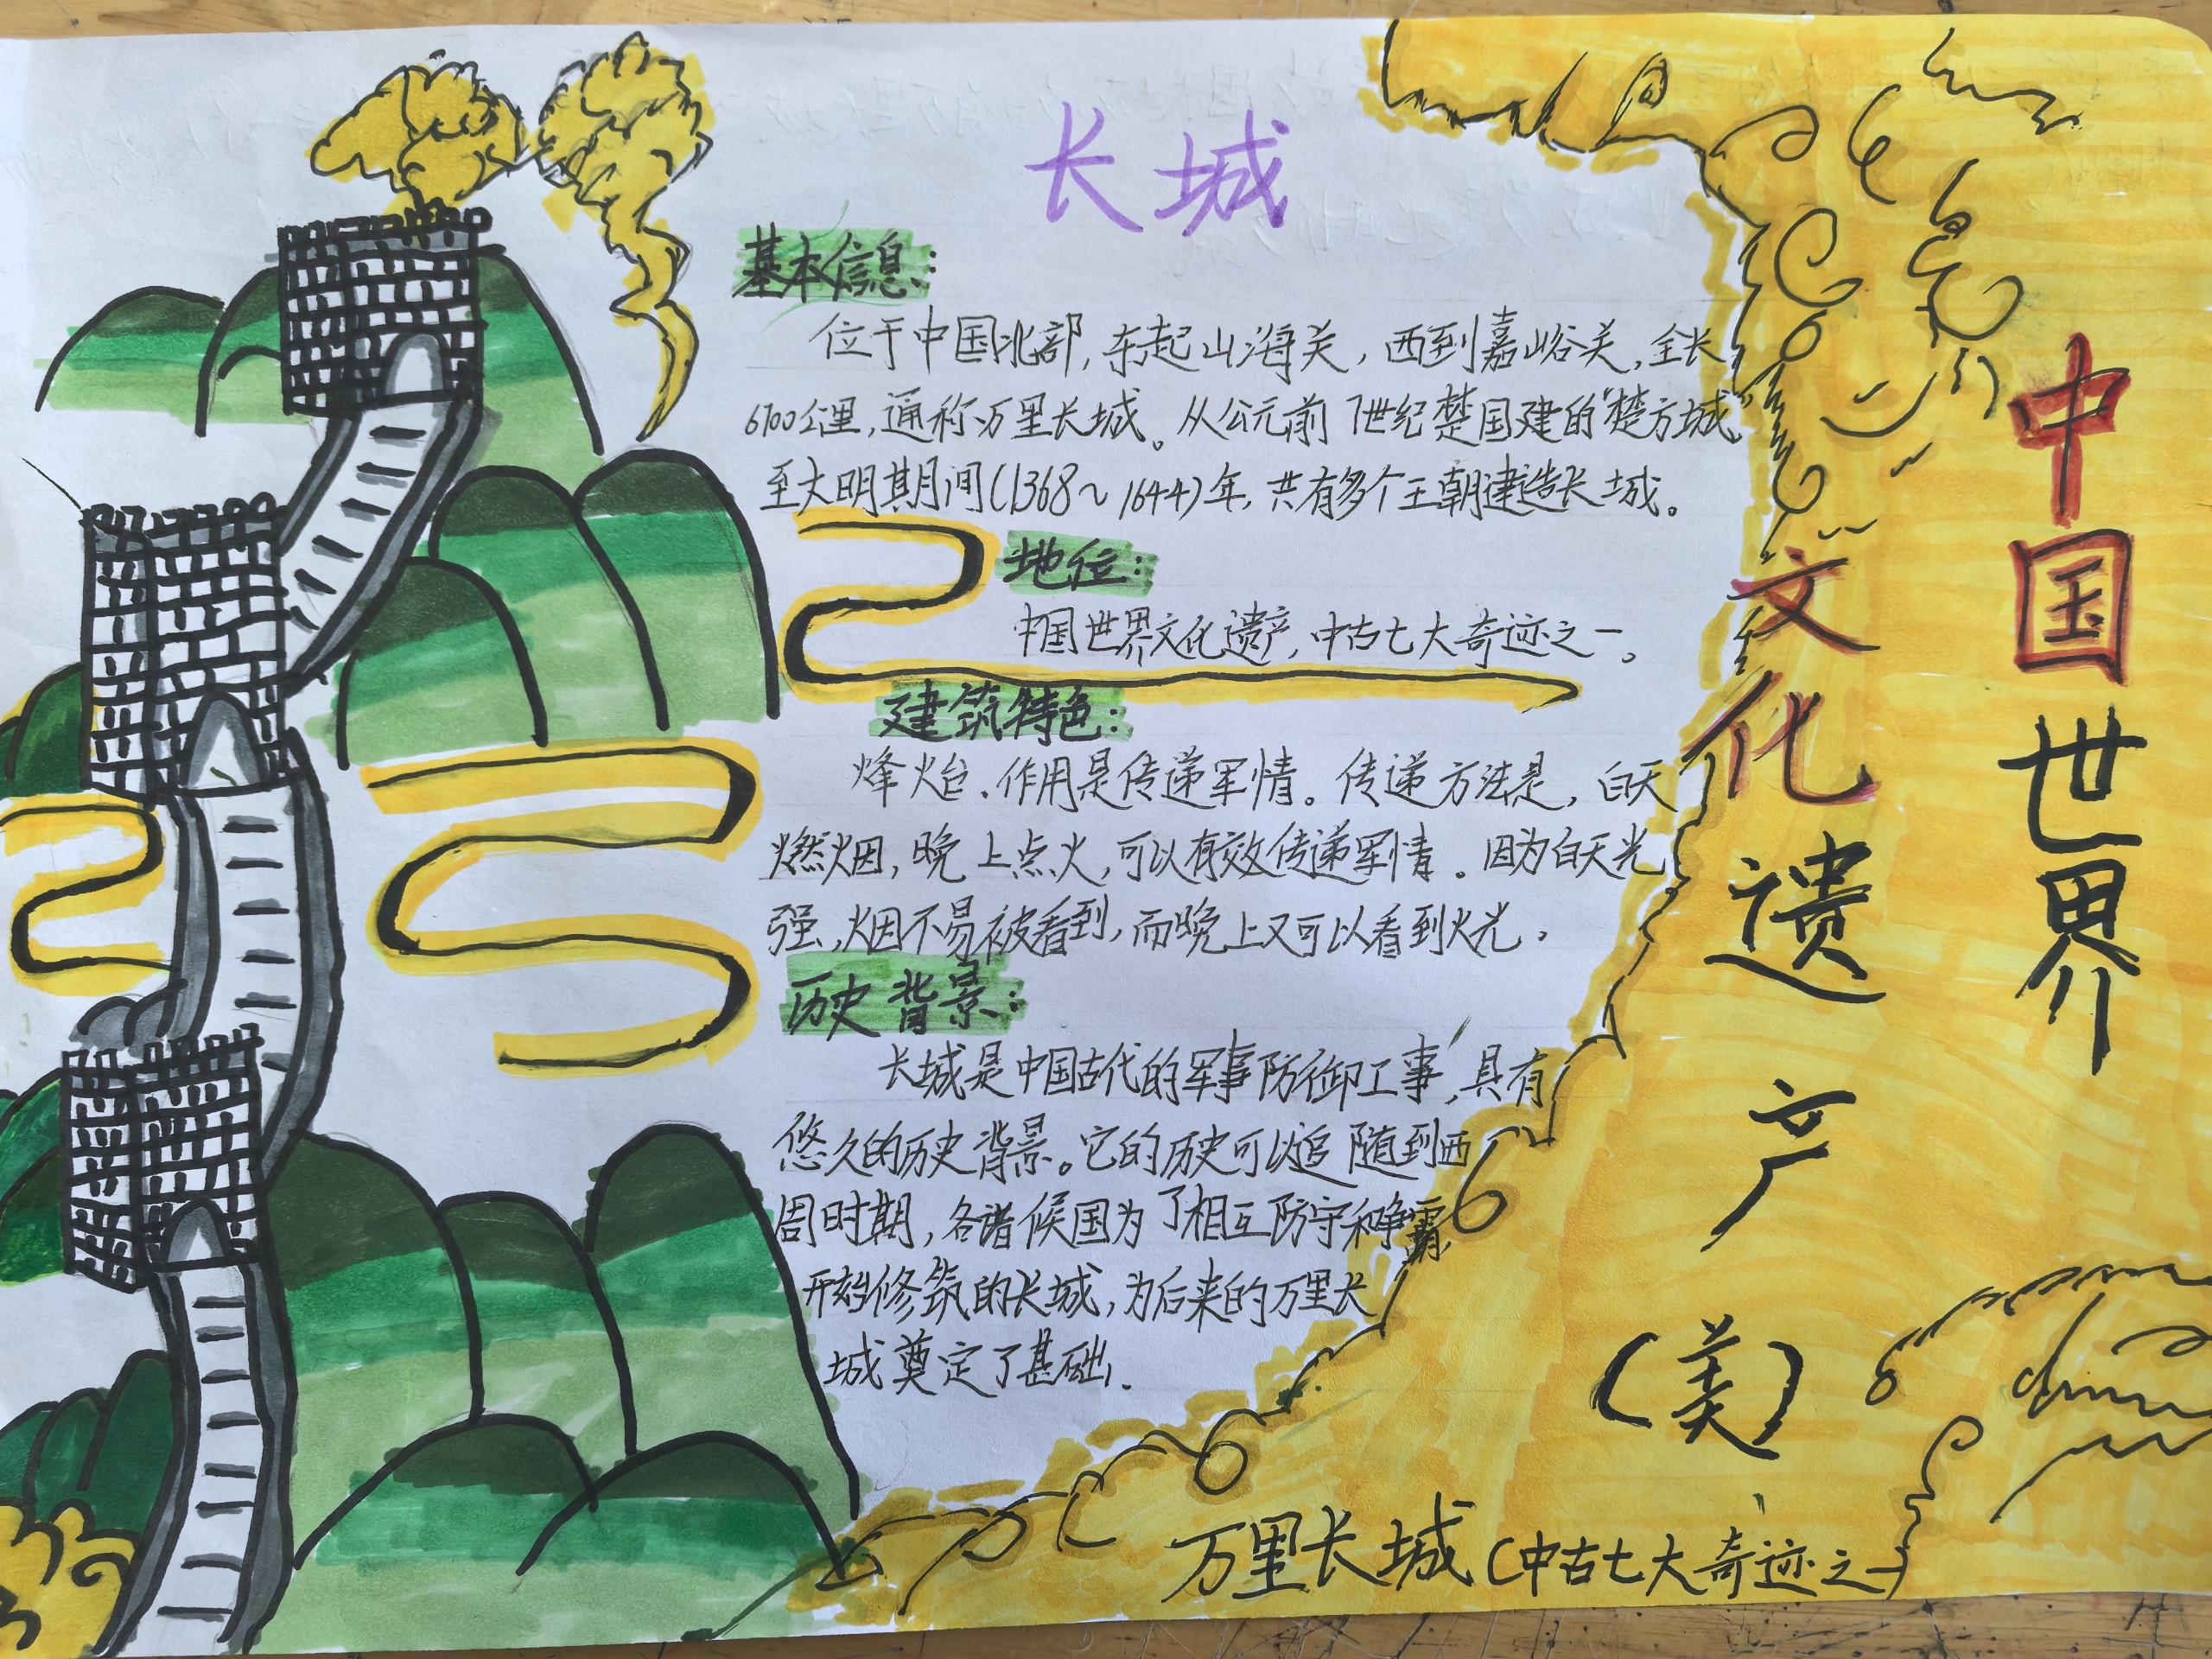 长城
基本信息:
位于中国北部,东起山海关,西到嘉峪关,全长
6700公里,通称万里长城。从公元前7世纪楚国建的"楚方城"
至大明期间(1368~1644)年,共有多个王朝建造长城。
地位:
中国世界文化遗产,中古七大奇迹之一。
建筑特色:
烽火台.作用是传递军情。传递方法是,白天
燃烟,晚上点火,可以有效传递军情。因为白天光
强,烟不易被看到,而晚上又可以看到火光.
历史背景:
长城是中国古代的军事防御工事,具有
悠久的历史背景。它的历史可以追随到西
周时期,各诸候国为了相互防守和争霸
开始修筑的长城,为后来的万里长
城奠定了基础.
中国世界
文化遗产
(美)
万里长城(中古七大奇迹之一)